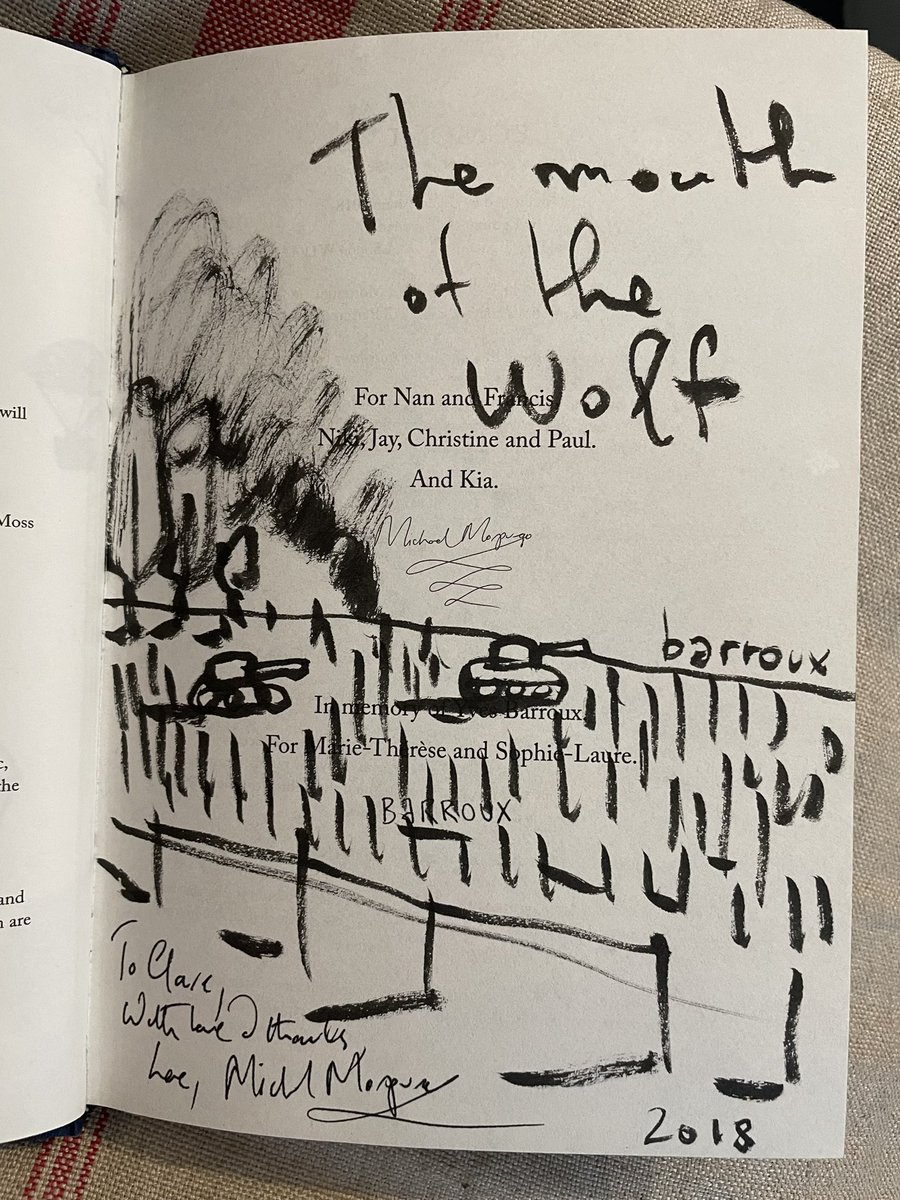 will
Moss
c,
the
and
n are
The mouth
of the
Wolf
For Nan and Francis
Niki, Jay, Christine and Paul.
And Kia.
Michael Morpurgo
barroux
In memory of Yves Barroux.
For Marie-Therèse and Sophie-Laure.
BARROUX
To Clare,
With love & thanks
Love, Michael Morpurgo
2018